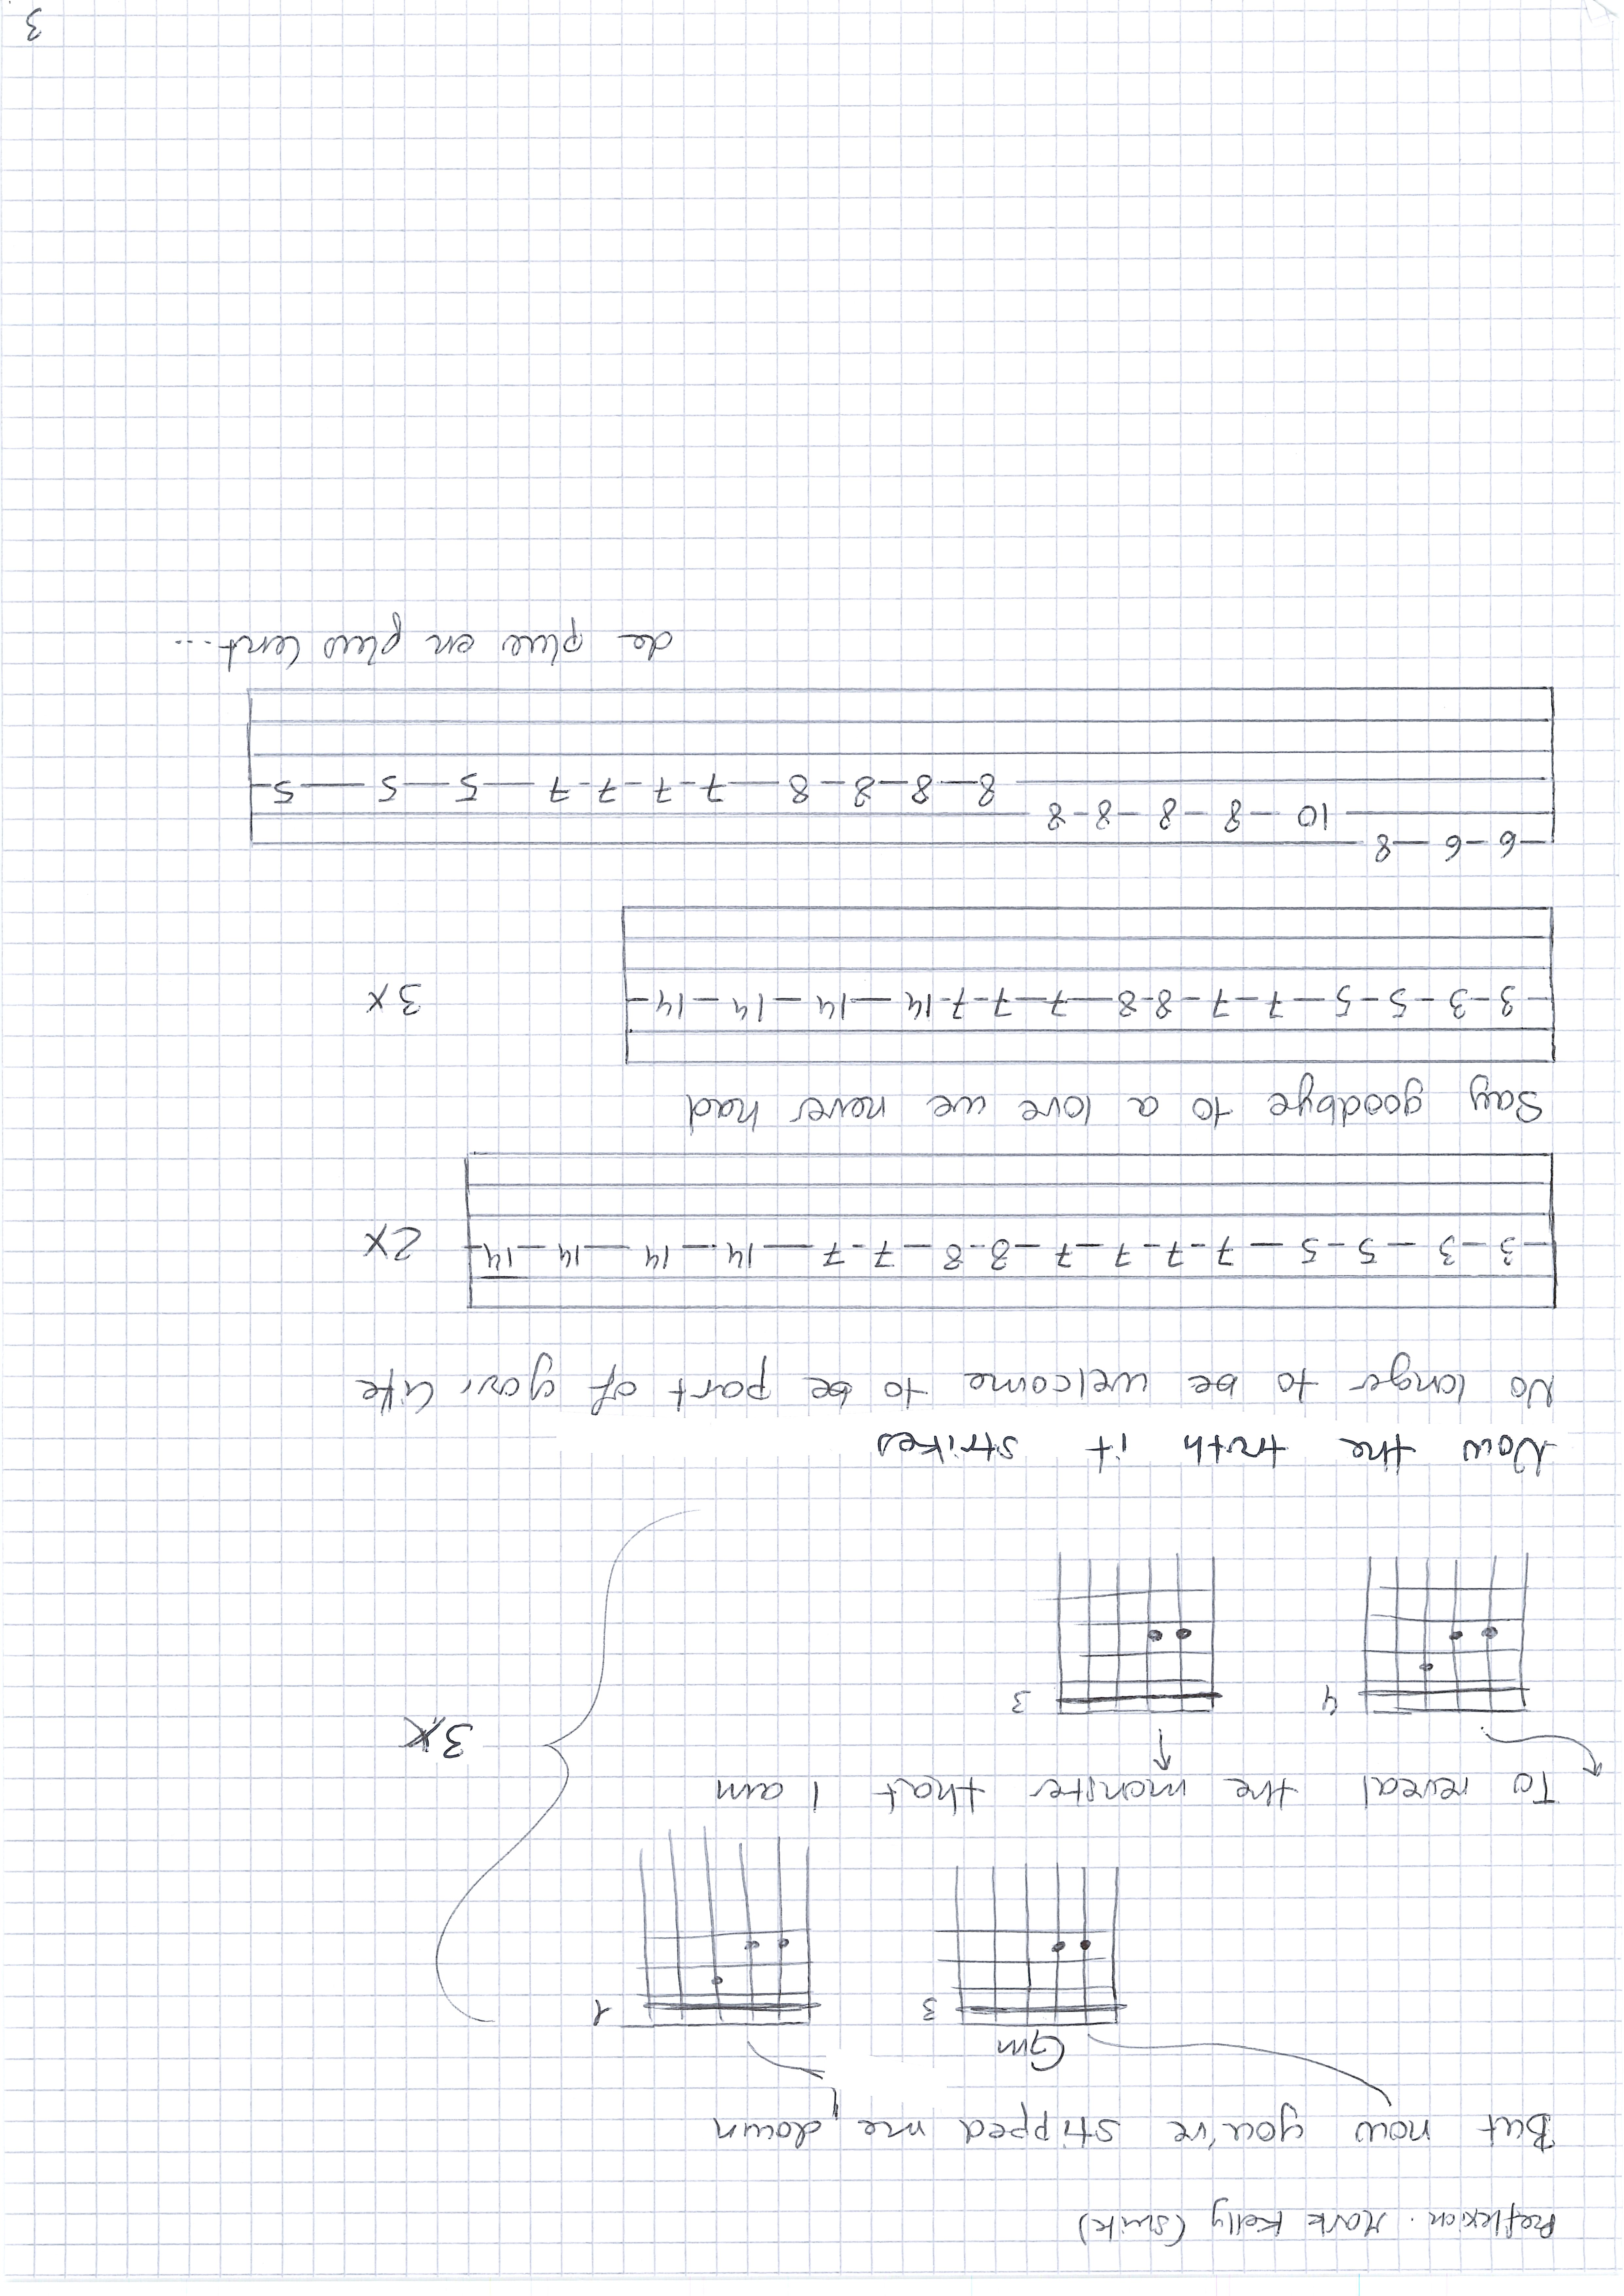 Reflexion. Mark Kelly (suite)
But now you've stipped me down
Gm
3 1
To reveal the monster that I am
3x
4 3
Now the truth it strikes
No longer to be welcome to be part of your life
-3-3-5-5-7-7-7-7-8-8-7-7-14-14-14-14- 2x
Say goodbye to a love we never had
-3-3-5-5-7-7-8-8-7-7-7-14-14-14-14- 3x
-6-6-8
10-8-8-8-8
8-8-8-8-7-7-7-7-5-5-5-
de plus en plus lent...
3